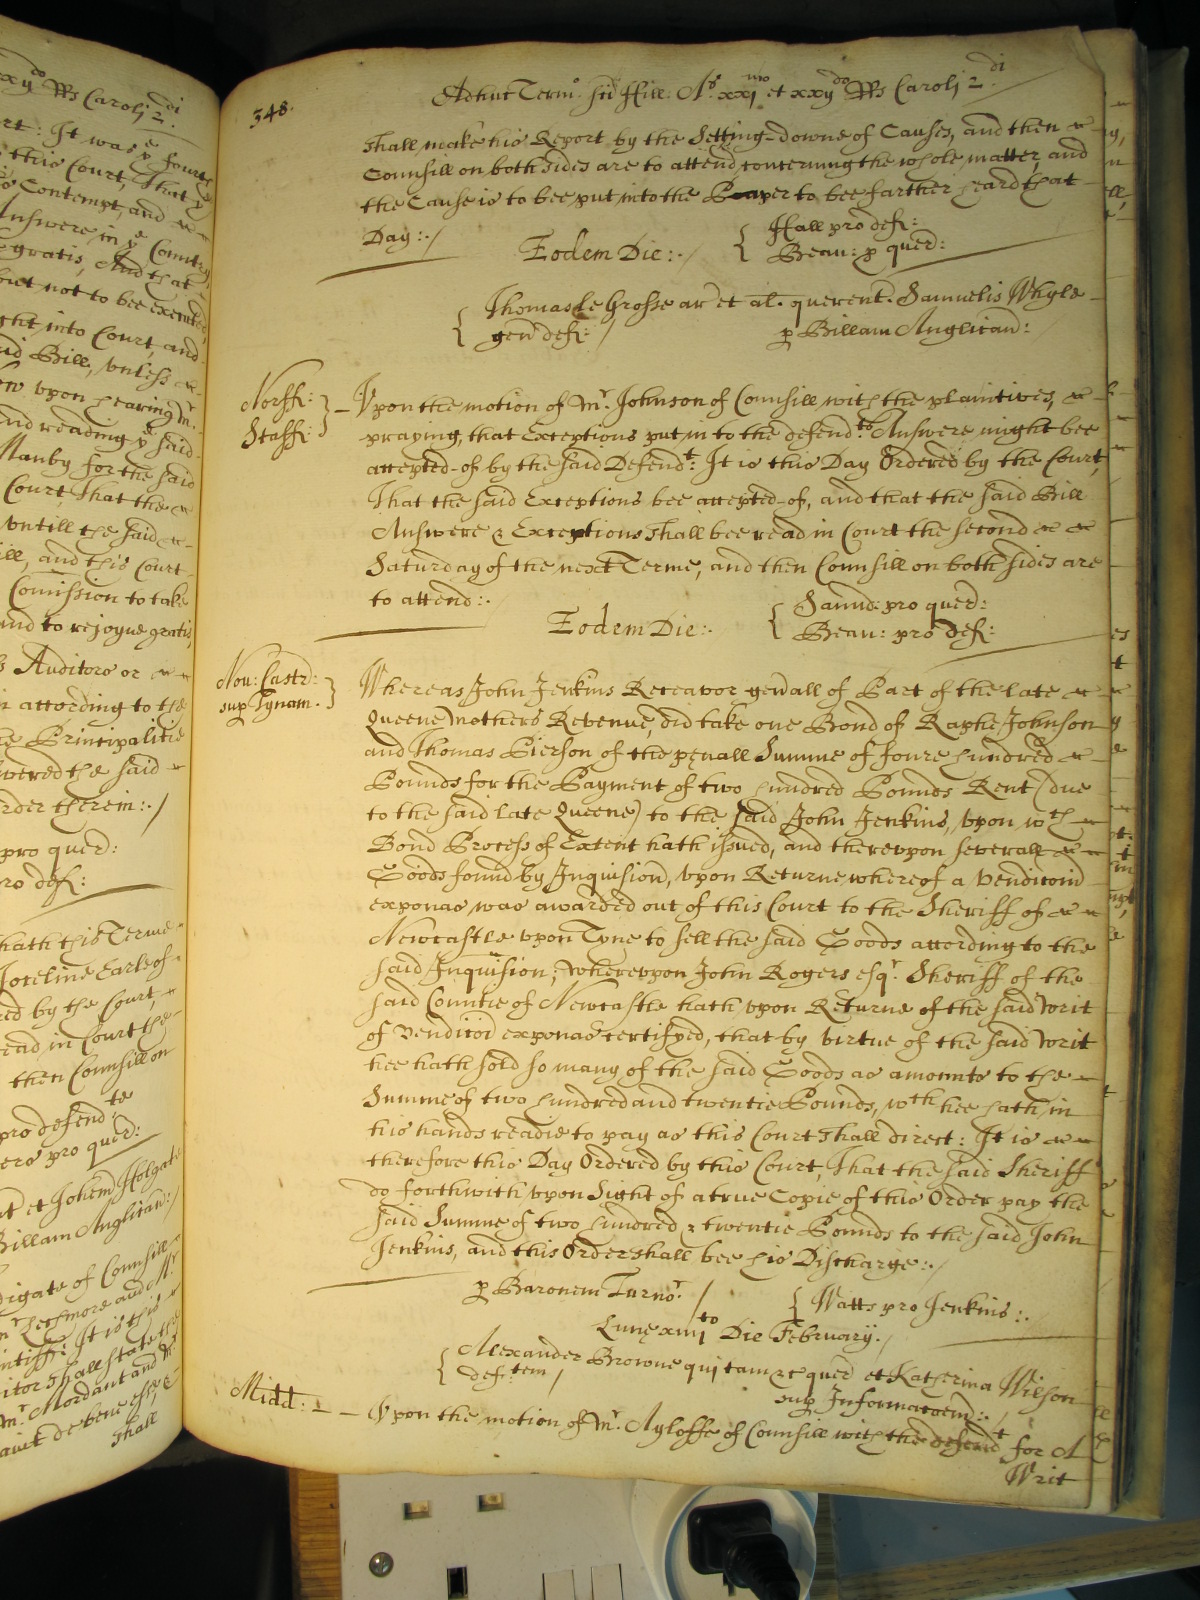 xxij do Rs Caroli 2 di
rt: It was þe fourth
this Court, That
Contempt, and
Answere in ye Country
gratis, And that
but not to bee executed
ght into Court, and
id Bill, vnless
vpon hearing Mr.
nd reading ye said
Manby for the said
Court, That the
vntill the said
ill, and this Court
Comission to take
and to rejoyne gratis
Auditors or
according to the
Principalitie
wered the said
rder therein:./
pro quer:
ro def:
hath this Terme
Joceline Earle of
ed by the Court,
ead in Court the
then Counsill on
pro defend:te
ers pro quer:
et Johem Holgate
Billam Anglican:/
digate of Counsill
Lechmore and Mr
intiffe: It is this
itor shall state the
Mr. Mordant and Mr.
de bene esse, &
shall
348.
Adhuc Term: Sci Hill: Ao. xxj mo et xxij do Rs Caroli 2 di
shall make his Report by the Setting-downe of Causes, and then
Counsill on both sides are to attend concerning the whole matter, and
the Cause is to bee put into the Paper to bee farther heard that
Day:./
Hall pro def:
Eodem Die:./
Beau: p quer:
Thomas Le Grosse ar et al. querent. Samuelis Whyle
gen def: / p Billam Anglican:/
Norff:
Staff:
Vpon the motion of Mr. Johnson of Counsill with the plaintives,
praying, that Exceptions put in to the defend:ts Answere might bee
accepted-of by the said Defend:t: It is this Day Ordered by the Court,
That the said Exceptions bee accepted-of, and that the said Bill
Answere & Exceptions shall bee read in Court the second
Saturday of the next Terme, and then Counsill on both sides are
to attend:.
Saund: pro quer:
Eodem Die:.
Beau: pro def:
Nou: Castr:
sup Tynam.
Whereas John Jenkins Receavor genall of Part of the late
Queene mothers Revenue, did take one Bond of Raphe Johnson
and Thomas Pierson of the penall Summe of foure hundred
Pounds for the Payment of two hundred Pounds Rent (due
to the said late Queene) to the said John Jenkins, vpon wch
Bond Process of Extent hath issued, and therevpon severall
Goods found by Inquision, vpon Returne whereof a Venditioni
exponas was awarded out of this Court to the Sheriff of
Newcastle vpon Tyne to sell the said Goods according to the
said Inquision; Wherevpon John Rogers esqr. Sheriff of the
said Countie of Newcastle hath vpon Returne of the said writ
of Venditioi exponas certifyed, that by virtue of the said writ
hee hath sold so many of the said Goods as amounts to the
Summe of two hundred and twentie Pounds, wch hee hath in
his hands readie to pay as this Court shall direct: It is
therefore this Day Ordered by this Court, That the said Sheriff
do forthwith vpon Sight of a true Copie of this Order pay the
said Summe of two hundred & twentie Pounds to the said John
Jenkins, and this Order shall bee his Discharge:./
p Baronem Turnor. / Watts pro Jenkins:.
Lunę xiiij to Die February./
Alexander Browne qui tam &c quer et Katherina Wilson
def:tem / sup Informacoem:./
Midd:
Vpon the motion of Mr. Ayloffe of Counsill with the defend:t for A
Writ